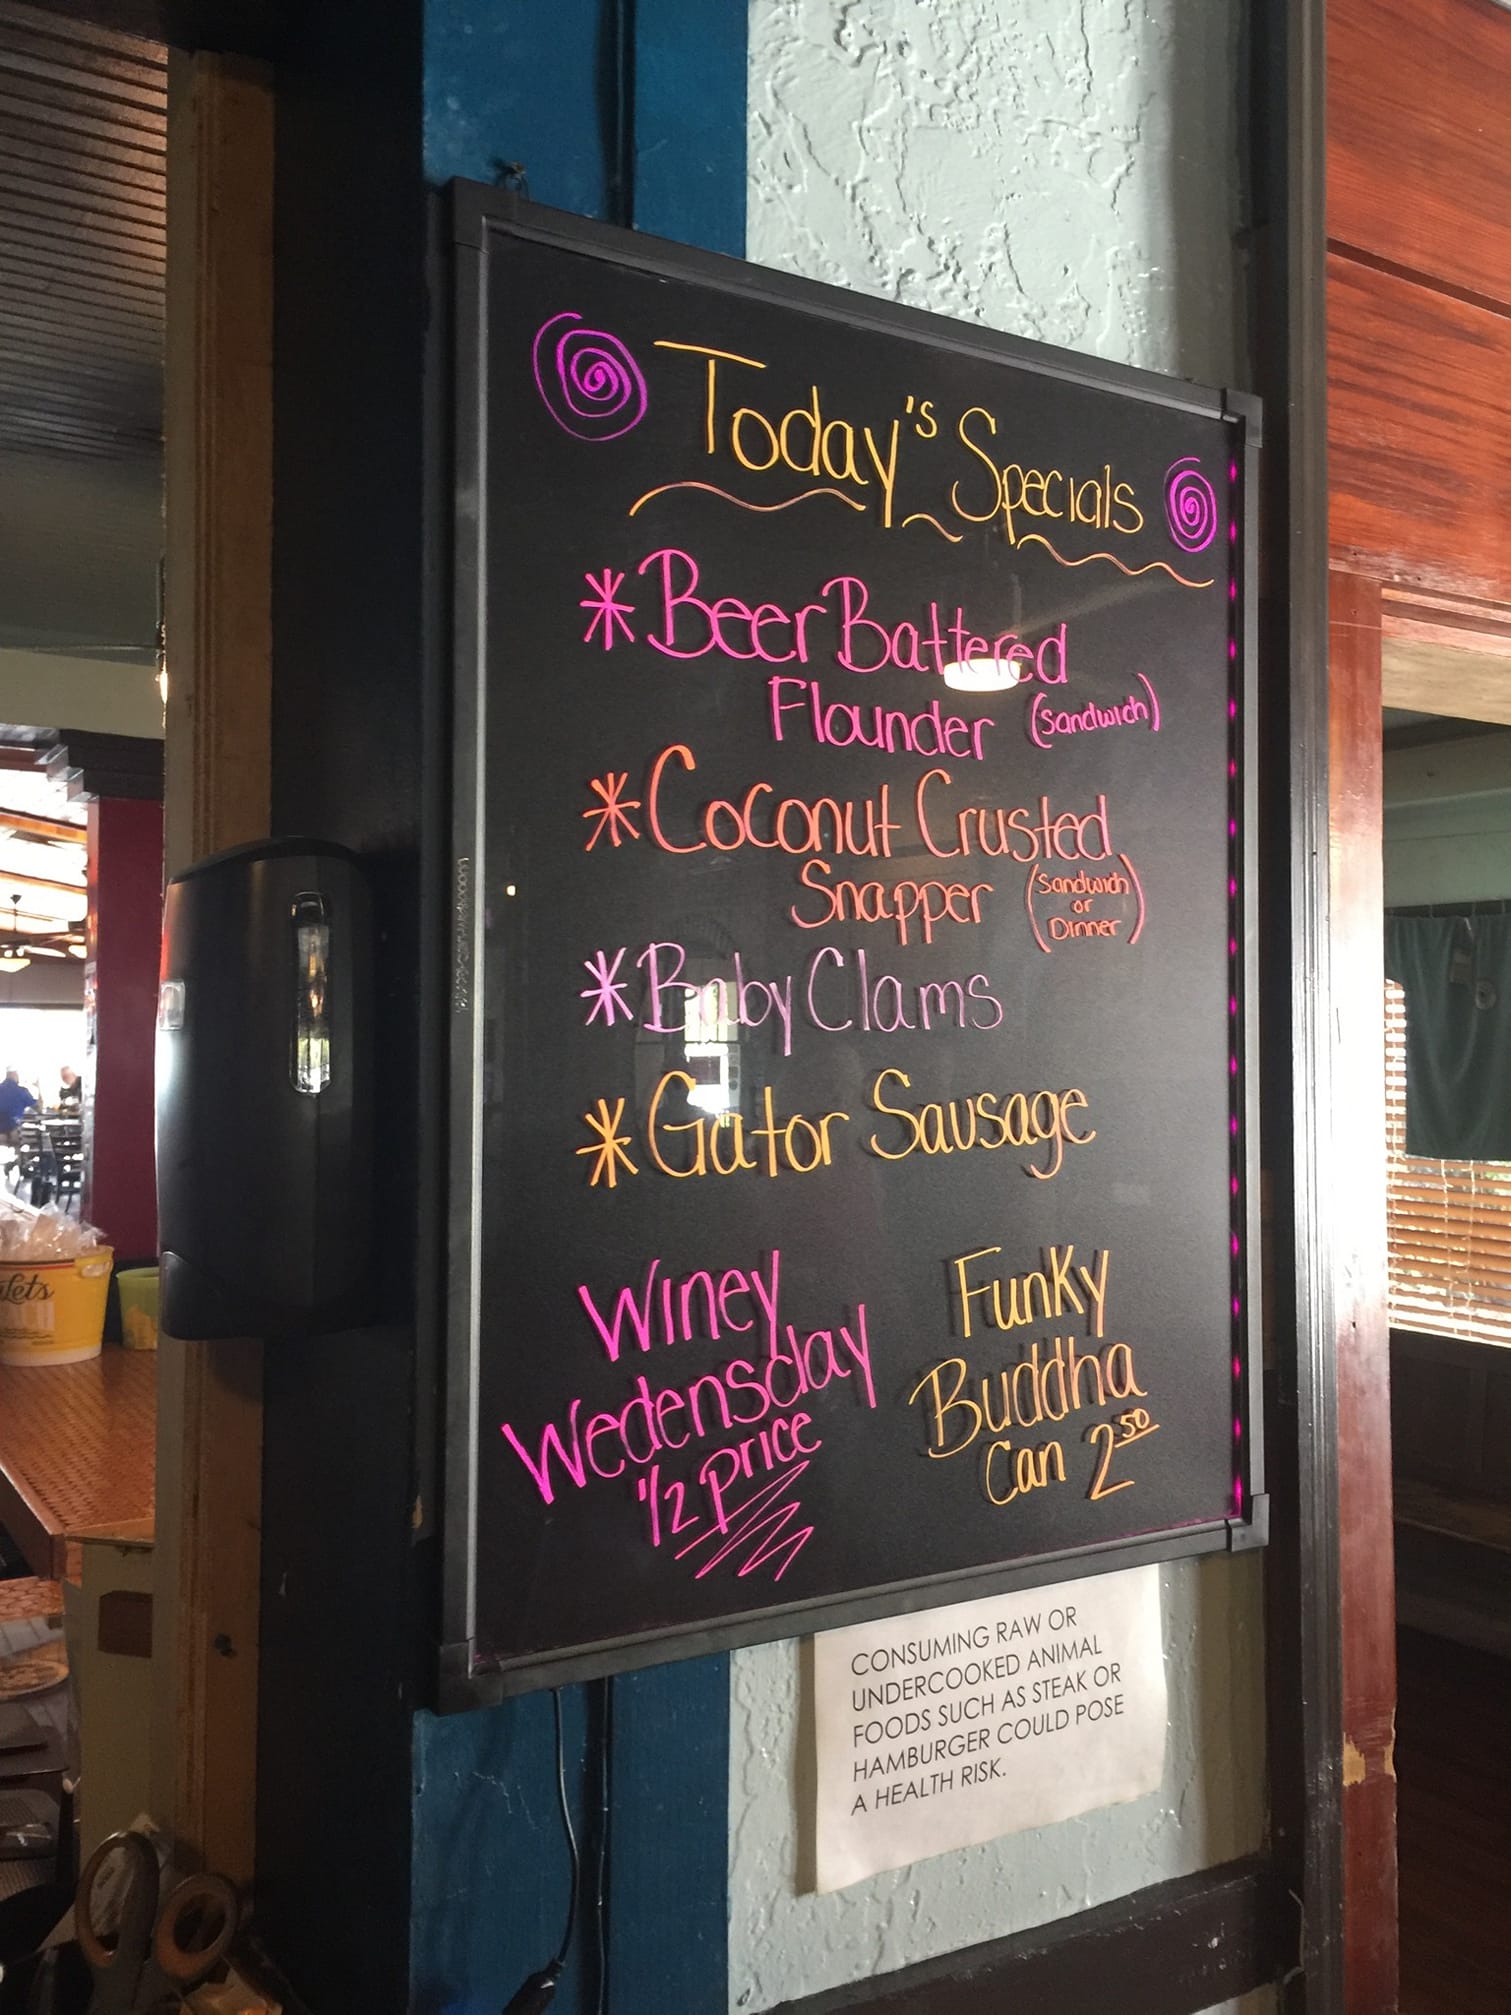 Today's Specials
*Beer Battered
Flounder (Sandwich)
*Coconut Crusted
Snapper (Sandwich
or
Dinner)
*Baby Clams
*Gator Sausage
Winey
Wedensday
1/2 price
Funky
Buddha
Can 2.50
CONSUMING RAW OR
UNDERCOOKED ANIMAL
FOODS SUCH AS STEAK OR
HAMBURGER COULD POSE
A HEALTH RISK.